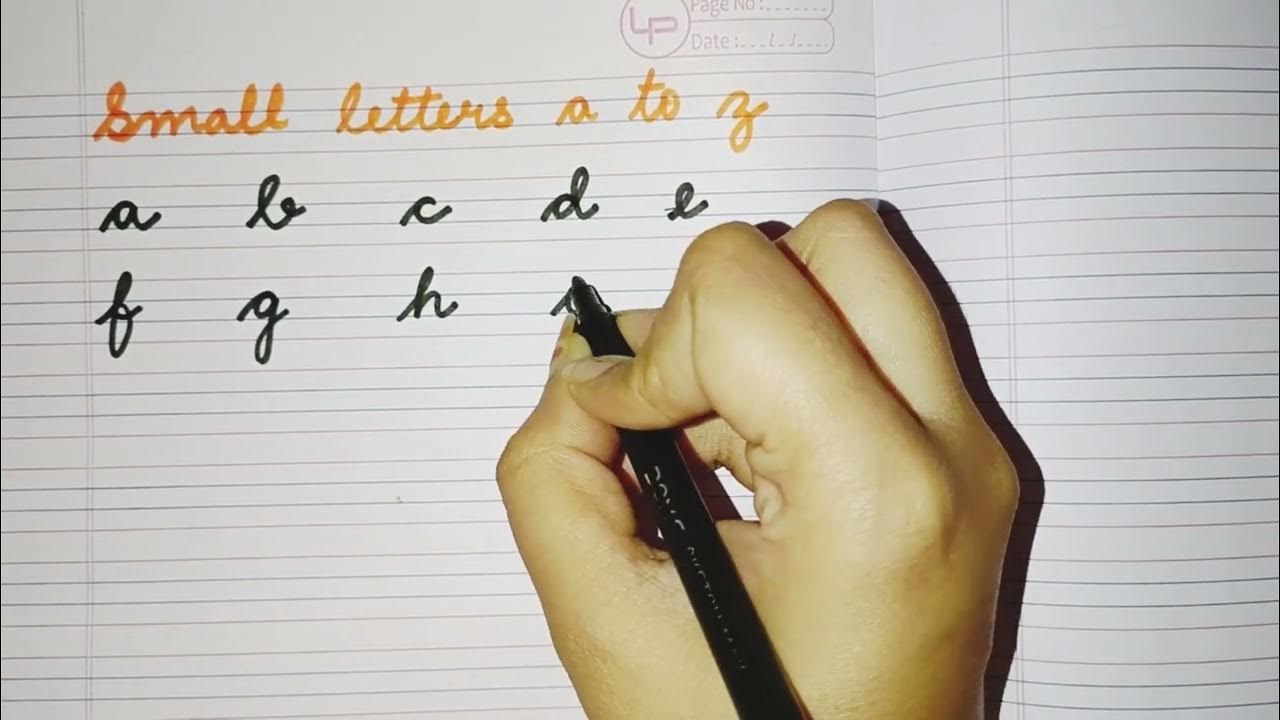 LP Page No :
Date :
Small letters a to z
a b c d e
f g h i
DOMS